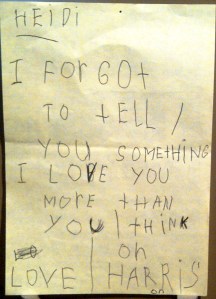 HEIDi
I FORGOt
TO tELL /
YOU SOMEtHING
I LOVE YOU
MORE tHAN
YOU | tHINK
oh
LOVE | HARRiS
on